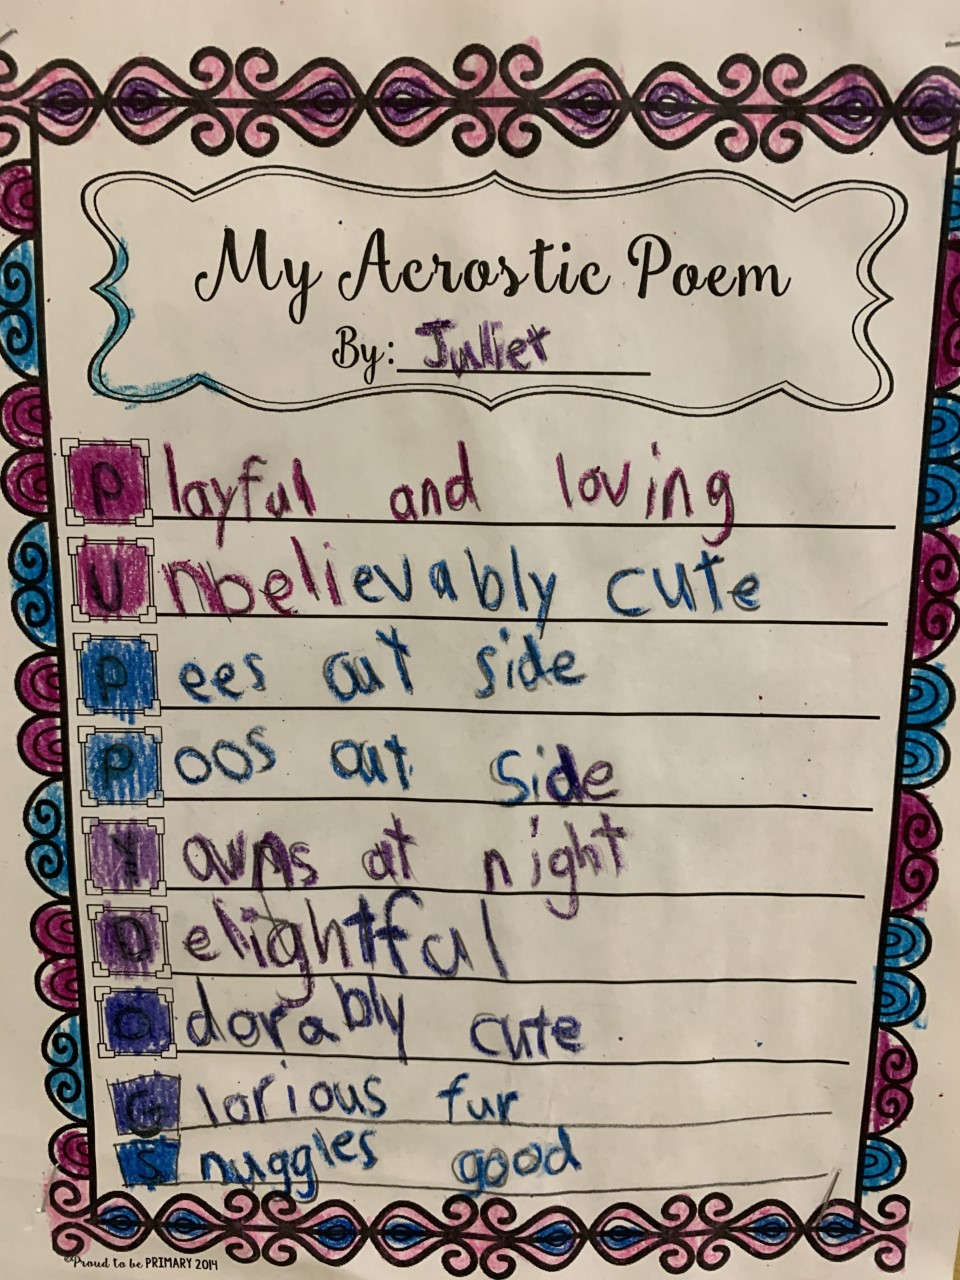 My Acrostic Poem
By: Juliet
Playful and loving
Unbelievably cute
Pees out side
Poos out side
Yawns at night
Delightful
adorably cute
Glorious fur
Snuggles good
©Proud to be PRIMARY 2014